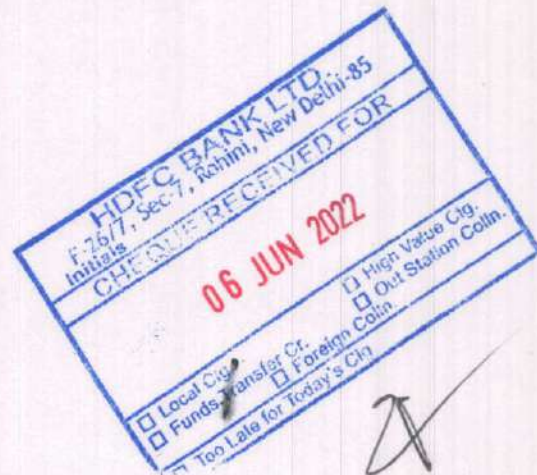 HDFC BANK LTD.
F-26/7, Sec 7, Rohini, New Delhi-85
Initials
CHEQUE RECEIVED FOR
06 JUN 2022
☐ Local Clg. ☐ High Value Clg.
☐ Funds Transfer Cr. ☐ Out Station Colln.
☐ Foreign Colln.
☐ Too Late for Today's Clg